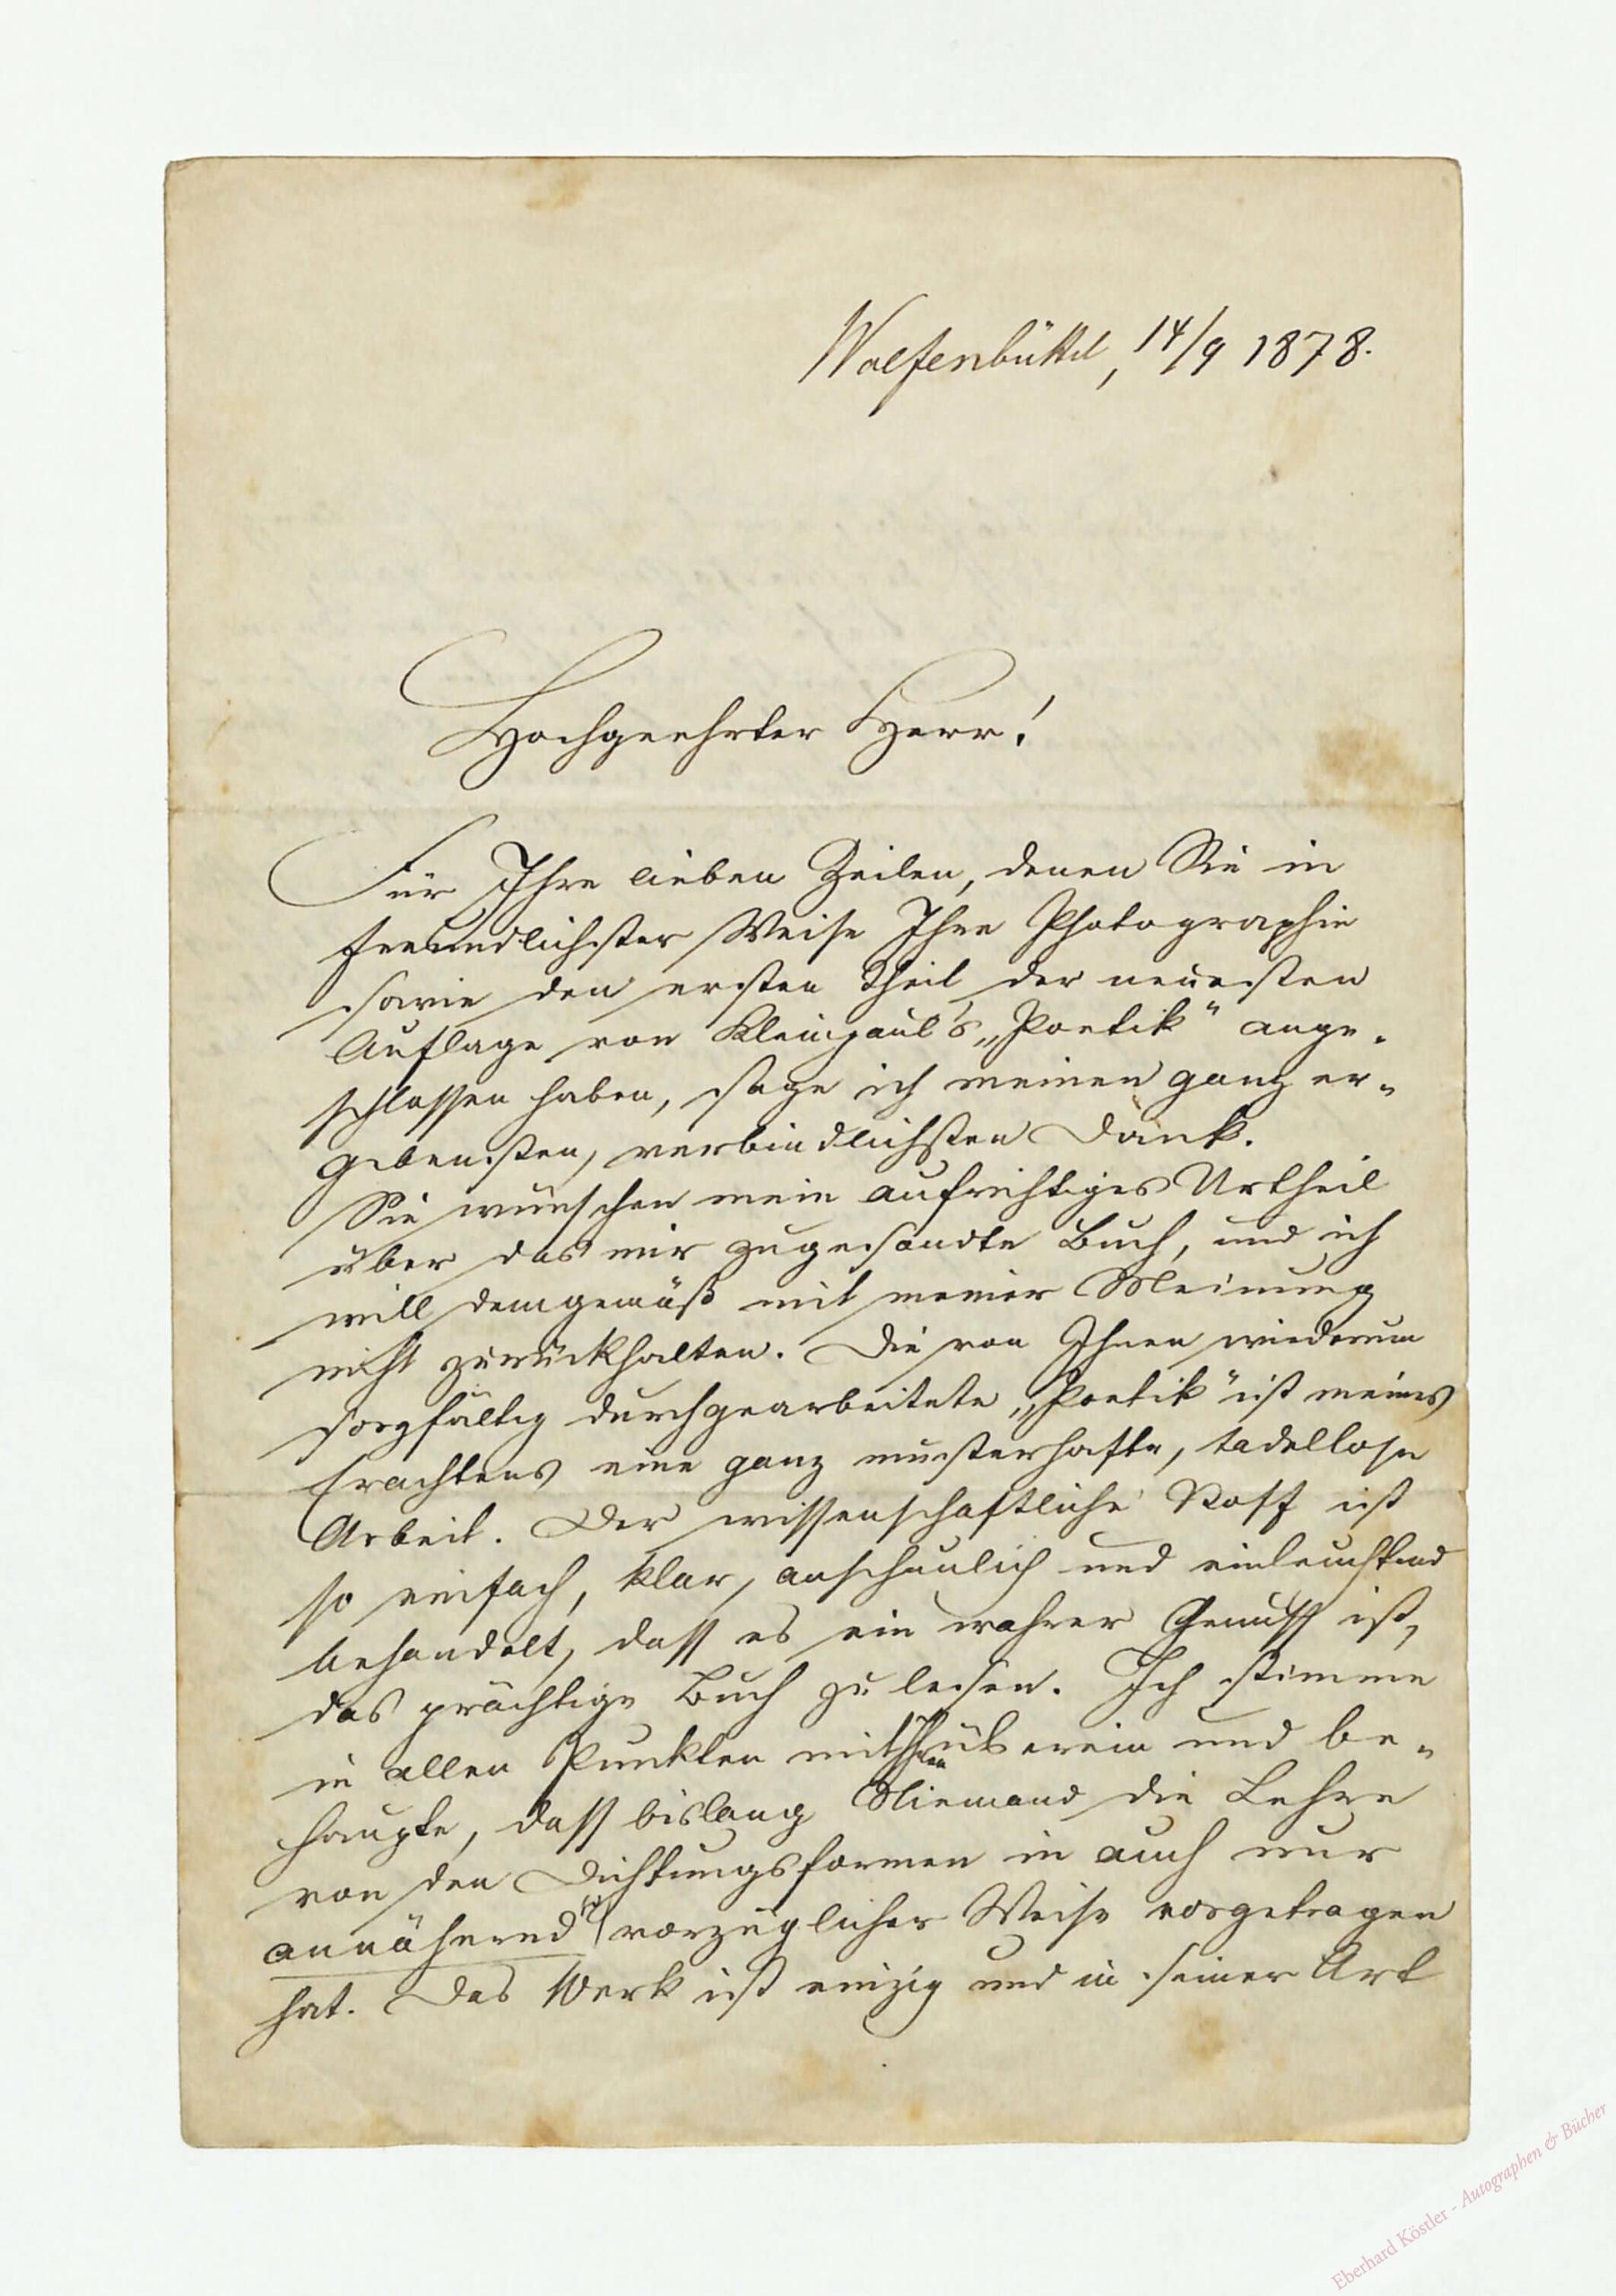 Wolfenbüttel, 14/9 1878.
Hochgeehrter Herr!
Für Ihre lieben Zeilen, denen Sie in
freundlichster Weise Ihre Photographie
sowie den ersten Theil der neuesten
Auflage von Kleinpaul's „Poetik" ange-
schlossen haben, sage ich meinen ganz er-
gebensten, verbindlichsten Dank.
Sie wünschen mein aufrichtiges Urtheil
über das mir zugesandte Buch, und ich
will demgemäß mit meiner Meinung
nicht zurückhalten. Die von Ihnen wiederum
sorgfältig durchgearbeitete „Poetik" ist meines
Erachtens eine ganz musterhafte, tadellose
Arbeit. Der wissenschaftliche Stoff ist
so einfach, klar, anschaulich und einleuchtend
behandelt, dass es ein wahrer Genuss ist,
das prächtige Buch zu lesen. Ich stimme
in allen Punkten mit Ihnen überein und be-
haupte, dass bislang Niemand die Lehre
von den Dichtungsformen in auch nur
annähernd so vorzüglicher Weise vorgetragen
hat. Das Werk ist einzig und in seiner Art
Eberhard Köstler - Autographen & Bücher